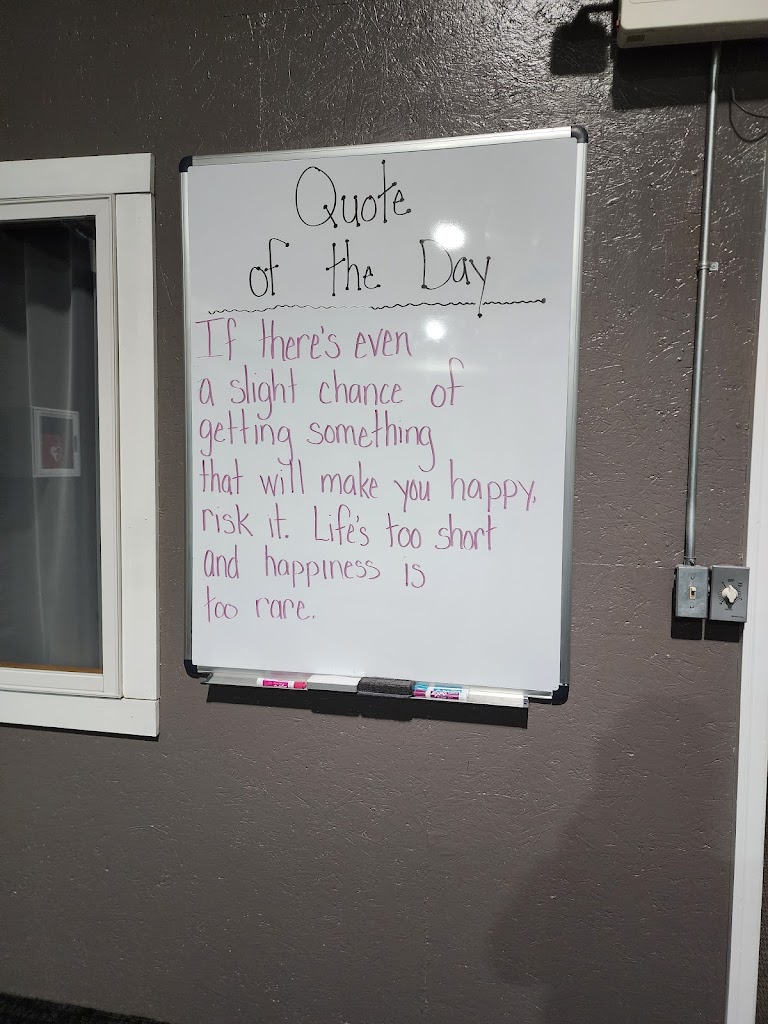 Quote
of the Day
If there's even
a slight chance of
getting something
that will make you happy,
risk it. Life's too short
and happiness is
too rare.